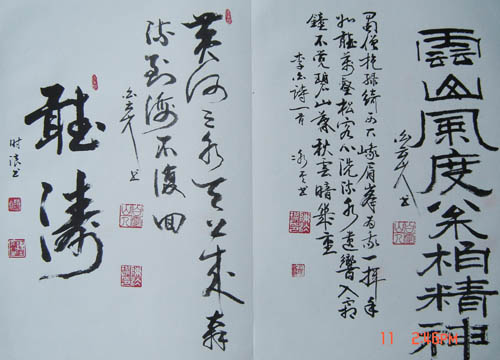 雲山風度枀柏精神
蜀僧抱綠綺西下峨眉峰为我一揮手
如聽萬壑松客心洗流水遺響入霜
鐘不觉碧山暮秋雲暗幾重
李白詩一首
黄河之水天上來奔
流到海不復回
聽濤